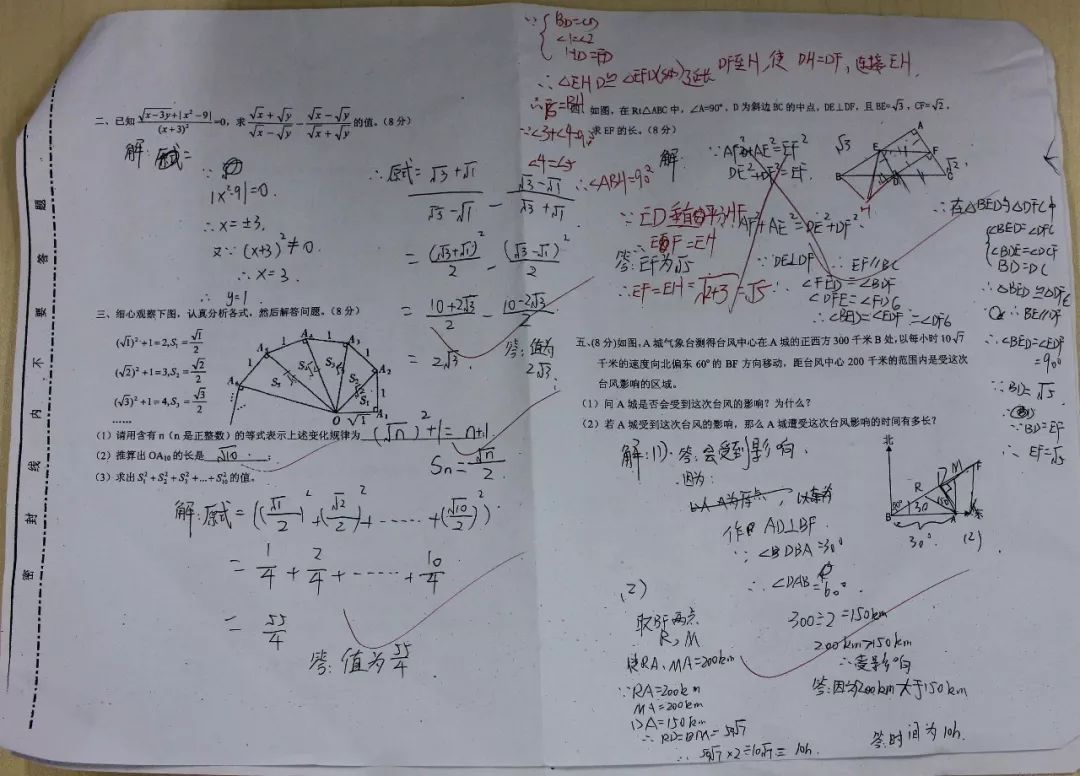 密 封 线 内 不 要 答 题
二、已知 (√x-3y+|x²-9|)/(x+3)² =0，求 (√x+√y)/(√x-√y) - (√x-√y)/(√x+√y) 的值。(8分)
解:
∵
|x²-9|=0.
∴ x=±3.
又∵ (x+3)²≠0.
∴ x=3.
∴ y=1.
∴原式= (√3+√1)/(√3-√1) - (√3-√1)/(√3+√1)
= (√3+√1)²/2 - (√3-√1)²/2
= (10+2√3)/2 - (10-2√3)/2
= 2√3.
答:值为
2√3.
三、细心观察下图，认真分析各式，然后解答问题。(8分)
(√1)²+1=2,S₁=√1/2
(√2)²+1=3,S₂=√2/2
(√3)²+1=4,S₃=√3/2
……
A₃
A₂
A₁
O
S₅
S₄
S₃
S₂
S₁
1
1
1
1
1
√1
(1) 请用含有 n（n 是正整数）的等式表示上述变化规律为 (√n)²+1=n+1
Sn=√n/2
(2) 推算出 OA₁₀ 的长是 √10 ;
(3) 求出 S₁²+S₂²+S₃²+…+S₁₀² 的值。
解:原式=((√1/2)²+(√2/2)²+……+(√10/2)²)
= 1/4 + 2/4 +……+ 10/4
= 55/4
答:值为 55/4
∵{ BD=CD
∠1=∠2
HD=FD
∴△EHD≌△EFD(SAS)
延长 DF至H,使 DH=DF,连接EH.
=BH
∵∠3+∠4=90
∠4=∠5
∴∠ABH=90°
∵ED垂直平分HF
∴EF=EH
∴EF=EH=√2+3=√5
如图，在 Rt△ABC 中，∠A=90°，D 为斜边 BC 的中点，DE⊥DF，且 BE=√3，CF=√2，
求 EF 的长。(8分)
解:
∵AF²+AE²=EF²
DE²+DF²=EF
AF²+AE²=DE²+DF²
∵DE⊥DF
∴EF∥BC
∴∠FED=∠BDF
∠DFE=∠FDG
∴∠BED=∠EDF=∠DFG
答:EF为√5
A
E
F
B
D
H
√3
√2
∴在△BED与△DFC中
∠BED=∠DFC
∠BDE=∠DCF
BD=DC
∴△BED≌△DFC
∴BE∥DF
∴∠BED=∠EDF
=90°
∵BD=√5
∵BD=EF
∴EF=√5
五、(8分)如图，A 城气象台测得台风中心在 A 城的正西方 300 千米 B 处，以每小时 10√7
千米的速度向北偏东 60°的 BF 方向移动，距台风中心 200 千米的范围内是受这次
台风影响的区域。
(1) 问 A 城是否会受到这次台风的影响？为什么？
(2) 若 A 城受到这次台风的影响，那么 A 城遭受这次台风影响的时间有多长？
解:(1).答:会受到影响.
因为:
作 AD⊥BF.
∵∠DBA=30°
∴∠DAB=60°
300÷2=150km
200km>150km
∴受影响
答:因为200km大于150km
北
东
F
M
R
B
A
30
30°
(2)
(2)
取BF两点
R,M
使RA,MA=200km
∵RA=200km
MA=200km
DA=150km
∴RD=DM=50√7
∴50√7×2÷10√7= 10h.
答:时间为10h.